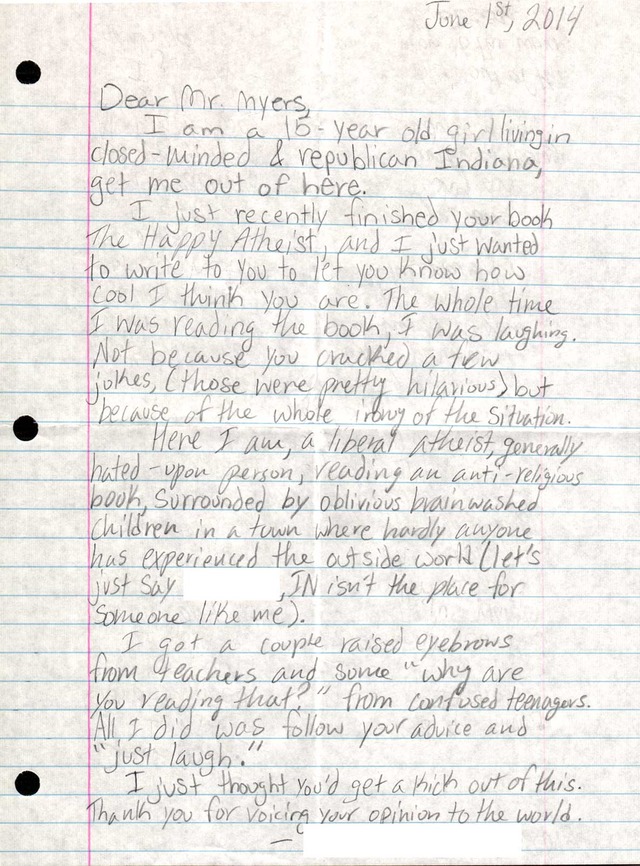 June 1st, 2014
Dear Mr. Myers,
I am a 15-year old girl living in
closed-minded & republican Indiana,
get me out of here.
I just recently finished your book
The Happy Atheist, and I just wanted
to write to you to let you know how
cool I think you are. The whole time
I was reading the book, I was laughing.
Not because you cracked a few
jokes, (those were pretty hilarious) but
because of the whole irony of the situation.
Here I am, a liberal atheist, generally
hated-upon person, reading an anti-religious
book, surrounded by oblivious brainwashed
children in a town where hardly anyone
has experienced the outside world (let's
just say , IN isn't the place for
someone like me).
I got a couple raised eyebrows
from teachers and some "why are
you reading that?" from confused teenagers.
All I did was follow your advice and
"just laugh."
I just thought you'd get a kick out of this.
Thank you for voicing your opinion to the world.
—